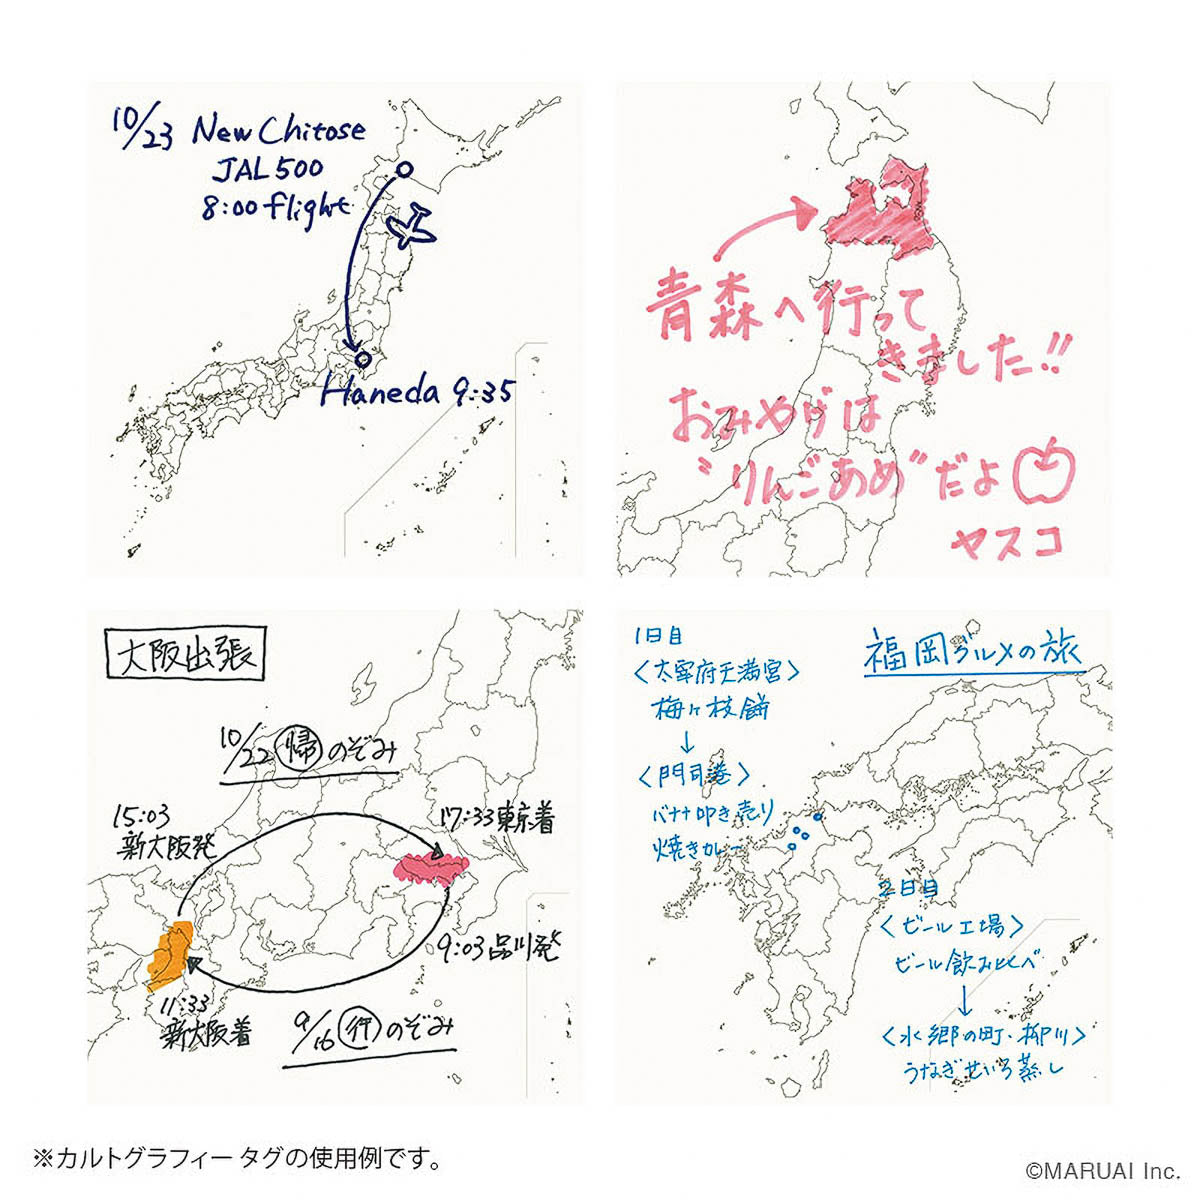 10/23 New Chitose
JAL500
8:00 flight
Haneda 9:35
青森へ行って
きました!!
おみやげは
"りんごあめ"だよ
ヤスコ
大阪出張
10/22 帰 のぞみ
15:03
新大阪発
17:33東京着
9:03品川発
11:33
新大阪着
9/16 行 のぞみ
福岡グルメの旅
1日目
〈太宰府天満宮〉
梅ヶ枝餅
↓
〈門司港〉
バナナ叩き売り
焼きカレー
2日目
〈ビール工場〉
ビール飲み比べ
↓
〈水郷の町・柳川〉
うなぎせいろ蒸し
※カルトグラフィー タグの使用例です。
©MARUAI Inc.